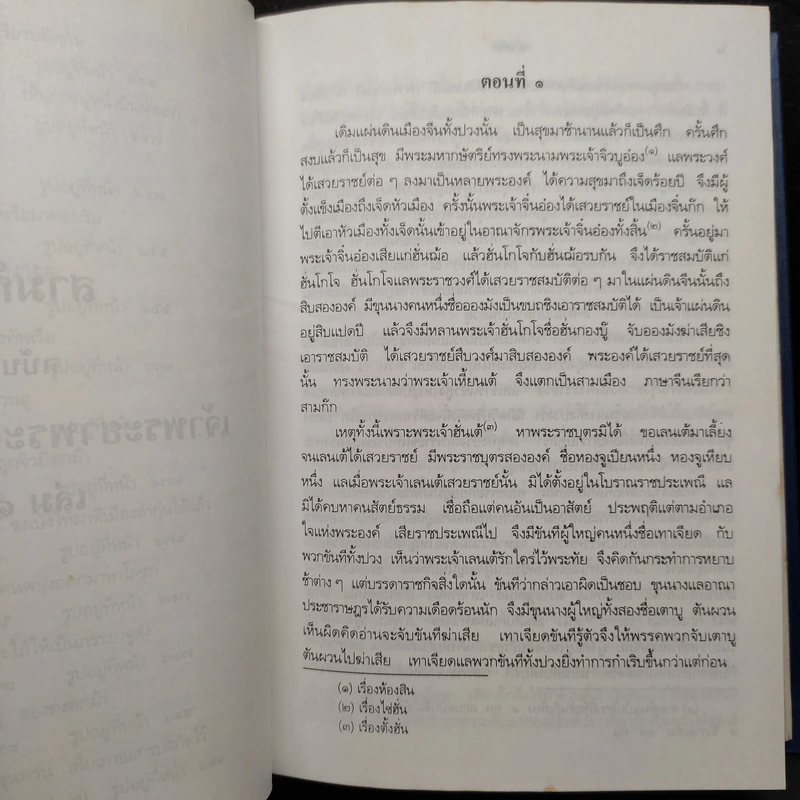 ตอนที่ ๑
เดิมแผ่นดินเมืองจีนทั้งปวงนั้น เป็นสุขมาช้านานแล้วก็เป็นศึก ครั้นศึก
สงบแล้วก็เป็นสุข มีพระมหากษัตริย์ทรงพระนามพระเจ้าจิวบูอ๋อง(๑) แลพระวงศ์
ได้เสวยราชย์ต่อ ๆ ลงมาเป็นหลายพระองค์ ได้ความสุขมาถึงเจ็ดร้อยปี จึงมีผู้
ตั้งแข็งเมืองถึงเจ็ดหัวเมือง ครั้งนั้นพระเจ้าจิ๋นอ๋องได้เสวยราชย์ในเมืองจิ๋นก๊ก ให้
ไปตีเอาหัวเมืองทั้งเจ็ดนั้นเข้าอยู่ในอาณาจักรพระเจ้าจิ๋นอ๋องทั้งสิ้น(๒) ครั้นอยู่มา
พระเจ้าจิ๋นอ๋องเสียแก่ฮั่นฌ้อ แล้วฮั่นโกโจกับฮั่นฌ้อรบกัน จึงได้ราชสมบัติแก่
ฮั่นโกโจ ฮั่นโกโจแลพระราชวงศ์ได้เสวยราชสมบัติต่อ ๆ มาในแผ่นดินจีนนั้นถึง
สิบสององค์ มีขุนนางคนหนึ่งชื่ออองมังเป็นขบถชิงเอาราชสมบัติได้ เป็นเจ้าแผ่นดิน
อยู่สิบแปดปี แล้วจึงมีหลานพระเจ้าฮั่นโกโจชื่อฮั่นกองบู๊ จับอองมังฆ่าเสียชิง
เอาราชสมบัติ ได้เสวยราชย์สืบวงศ์มาสิบสององค์ พระองค์ได้เสวยราชย์ที่สุด
นั้น ทรงพระนามว่าพระเจ้าเหี้ยนเต้ จึงแตกเป็นสามเมือง ภาษาจีนเรียกว่า
สามก๊ก
เหตุทั้งนี้เพราะพระเจ้าฮั่นเต้(๓) หาพระราชบุตรมิได้ ขอเลนเต้มาเลี้ยง
จนเลนเต้ได้เสวยราชย์ มีพระราชบุตรสององค์ ชื่อหองจูเปียนหนึ่ง หองจูเหียบ
หนึ่ง แลเมื่อพระเจ้าเลนเต้เสวยราชย์นั้น มิได้ตั้งอยู่ในโบราณราชประเพณี แล
มิได้คบหาคนสัตย์ธรรม เชื่อถือแต่คนอันเป็นอาสัตย์ ประพฤติแต่ตามอำเภอ
ใจแห่งพระองค์ เสียราชประเพณีไป จึงมีขันทีผู้ใหญ่คนหนึ่งชื่อเทาเจียด กับ
พวกขันทีทั้งปวง เห็นว่าพระเจ้าเลนเต้รักใคร่ไว้พระทัย จึงคิดกันกระทำการหยาบ
ช้าต่าง ๆ แต่บรรดาราชกิจสิ่งใดนั้น ขันทีว่ากล่าวเอาผิดเป็นชอบ ขุนนางแลอาณา
ประชาราษฎรได้รับความเดือดร้อนนัก จึงมีขุนนางผู้ใหญ่ทั้งสองชื่อเตาบู ตันผวน
เห็นผิดคิดอ่านจะจับขันทีฆ่าเสีย เทาเจียดขันทีรู้ตัวจึงให้พรรคพวกจับเตาบู
ตันผวนไปฆ่าเสีย เทาเจียดแลพวกขันทีทั้งปวงยิ่งทำการกำเริบขึ้นกว่าแต่ก่อน
(๑) เรื่องห้องสิน
(๒) เรื่องไซ่ฮั่น
(๓) เรื่องตั้งฮั่น